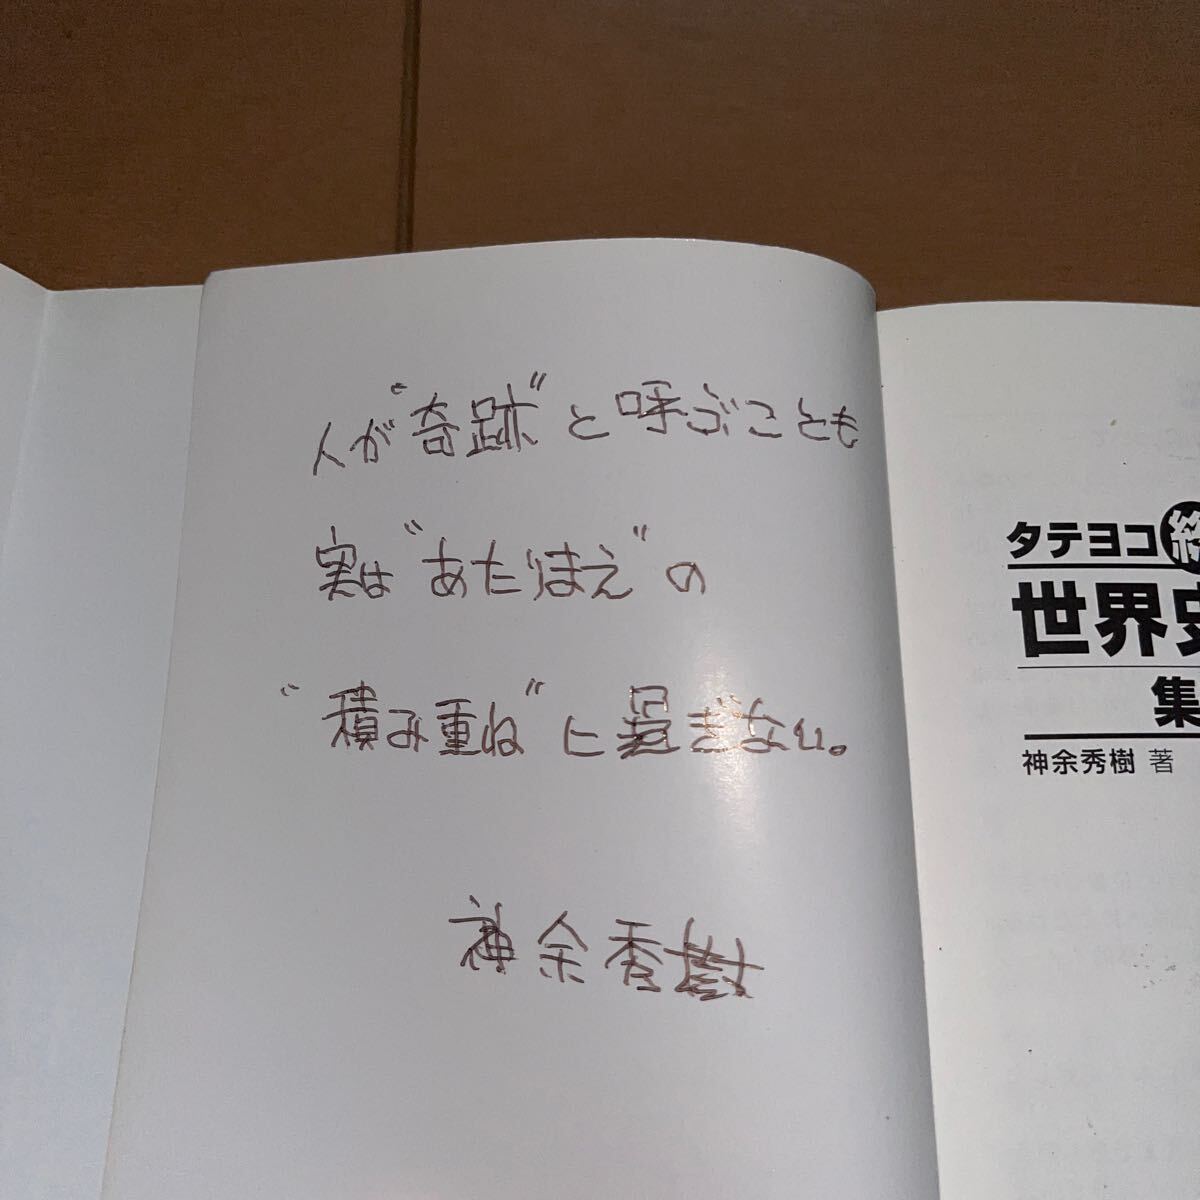 人が“奇跡”と呼ぶことも
実は“あたりまえ”の
“積み重ね”に過ぎない。
神余秀樹
タテヨコ
世界史
集
神余秀樹 著